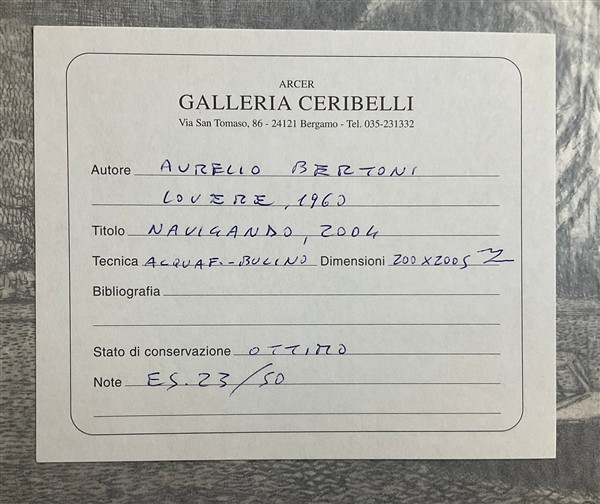 ARCER
GALLERIA CERIBELLI
Via San Tomaso, 86 - 24121 Bergamo - Tel. 035-231332
Autore AURELIO BERTONI
LOVERE, 1960
Titolo NAVIGANDO, 2004
Tecnica ACQUAF.-BULINO Dimensioni 200x200
Bibliografia
Stato di conservazione OTTIMO
Note ES. 23/50